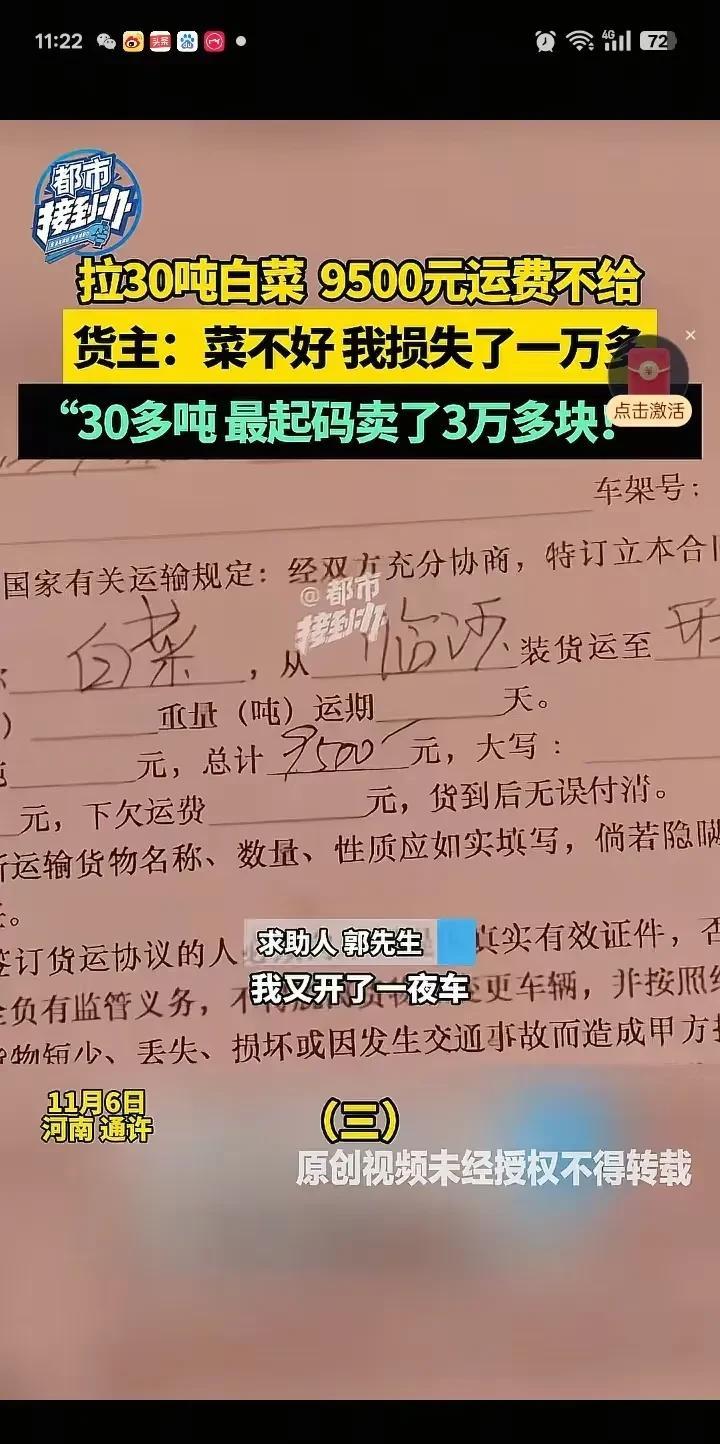 11:22
4G
72
都市
接到办
拉30吨白菜 9500元运费不给
货主：菜不好 我损失了一万多
点击激活
“30多吨 最起码卖了3万多块！
车架号：
国家有关运输规定：经双方充分协商，特订立本合
@都市
接到办
白菜，从临沂装货运至
重量（吨）运期 天。
元，总计9500元，大写：
元，下欠运费 元，货到后无误付消。
所运输货物名称、数量、性质应如实填写，倘若隐瞒
签订货运协议的人 真实有效证件，否
求助人 郭先生
全负有监管义务，不得 变更车辆，并按照
我又开了一夜车
货物短少、丢失、损坏或因发生交通事故而造成甲方
11月6日
河南 通许
（三）
原创视频未经授权不得转载